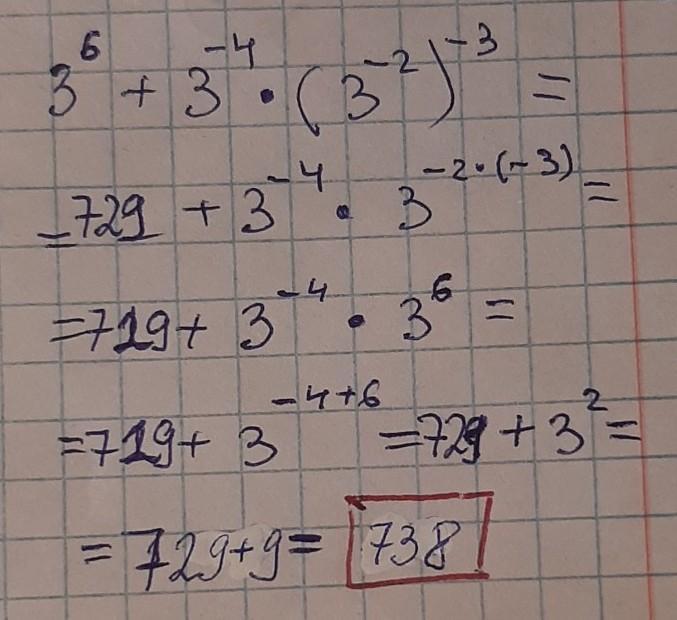 3⁶ + 3⁻⁴ · (3⁻²)⁻³ =
= 729 + 3⁻⁴ · 3⁻²·⁽⁻³⁾ =
= 729 + 3⁻⁴ · 3⁶ =
= 729 + 3⁻⁴⁺⁶ = 729 + 3² =
= 729 + 9 = 738